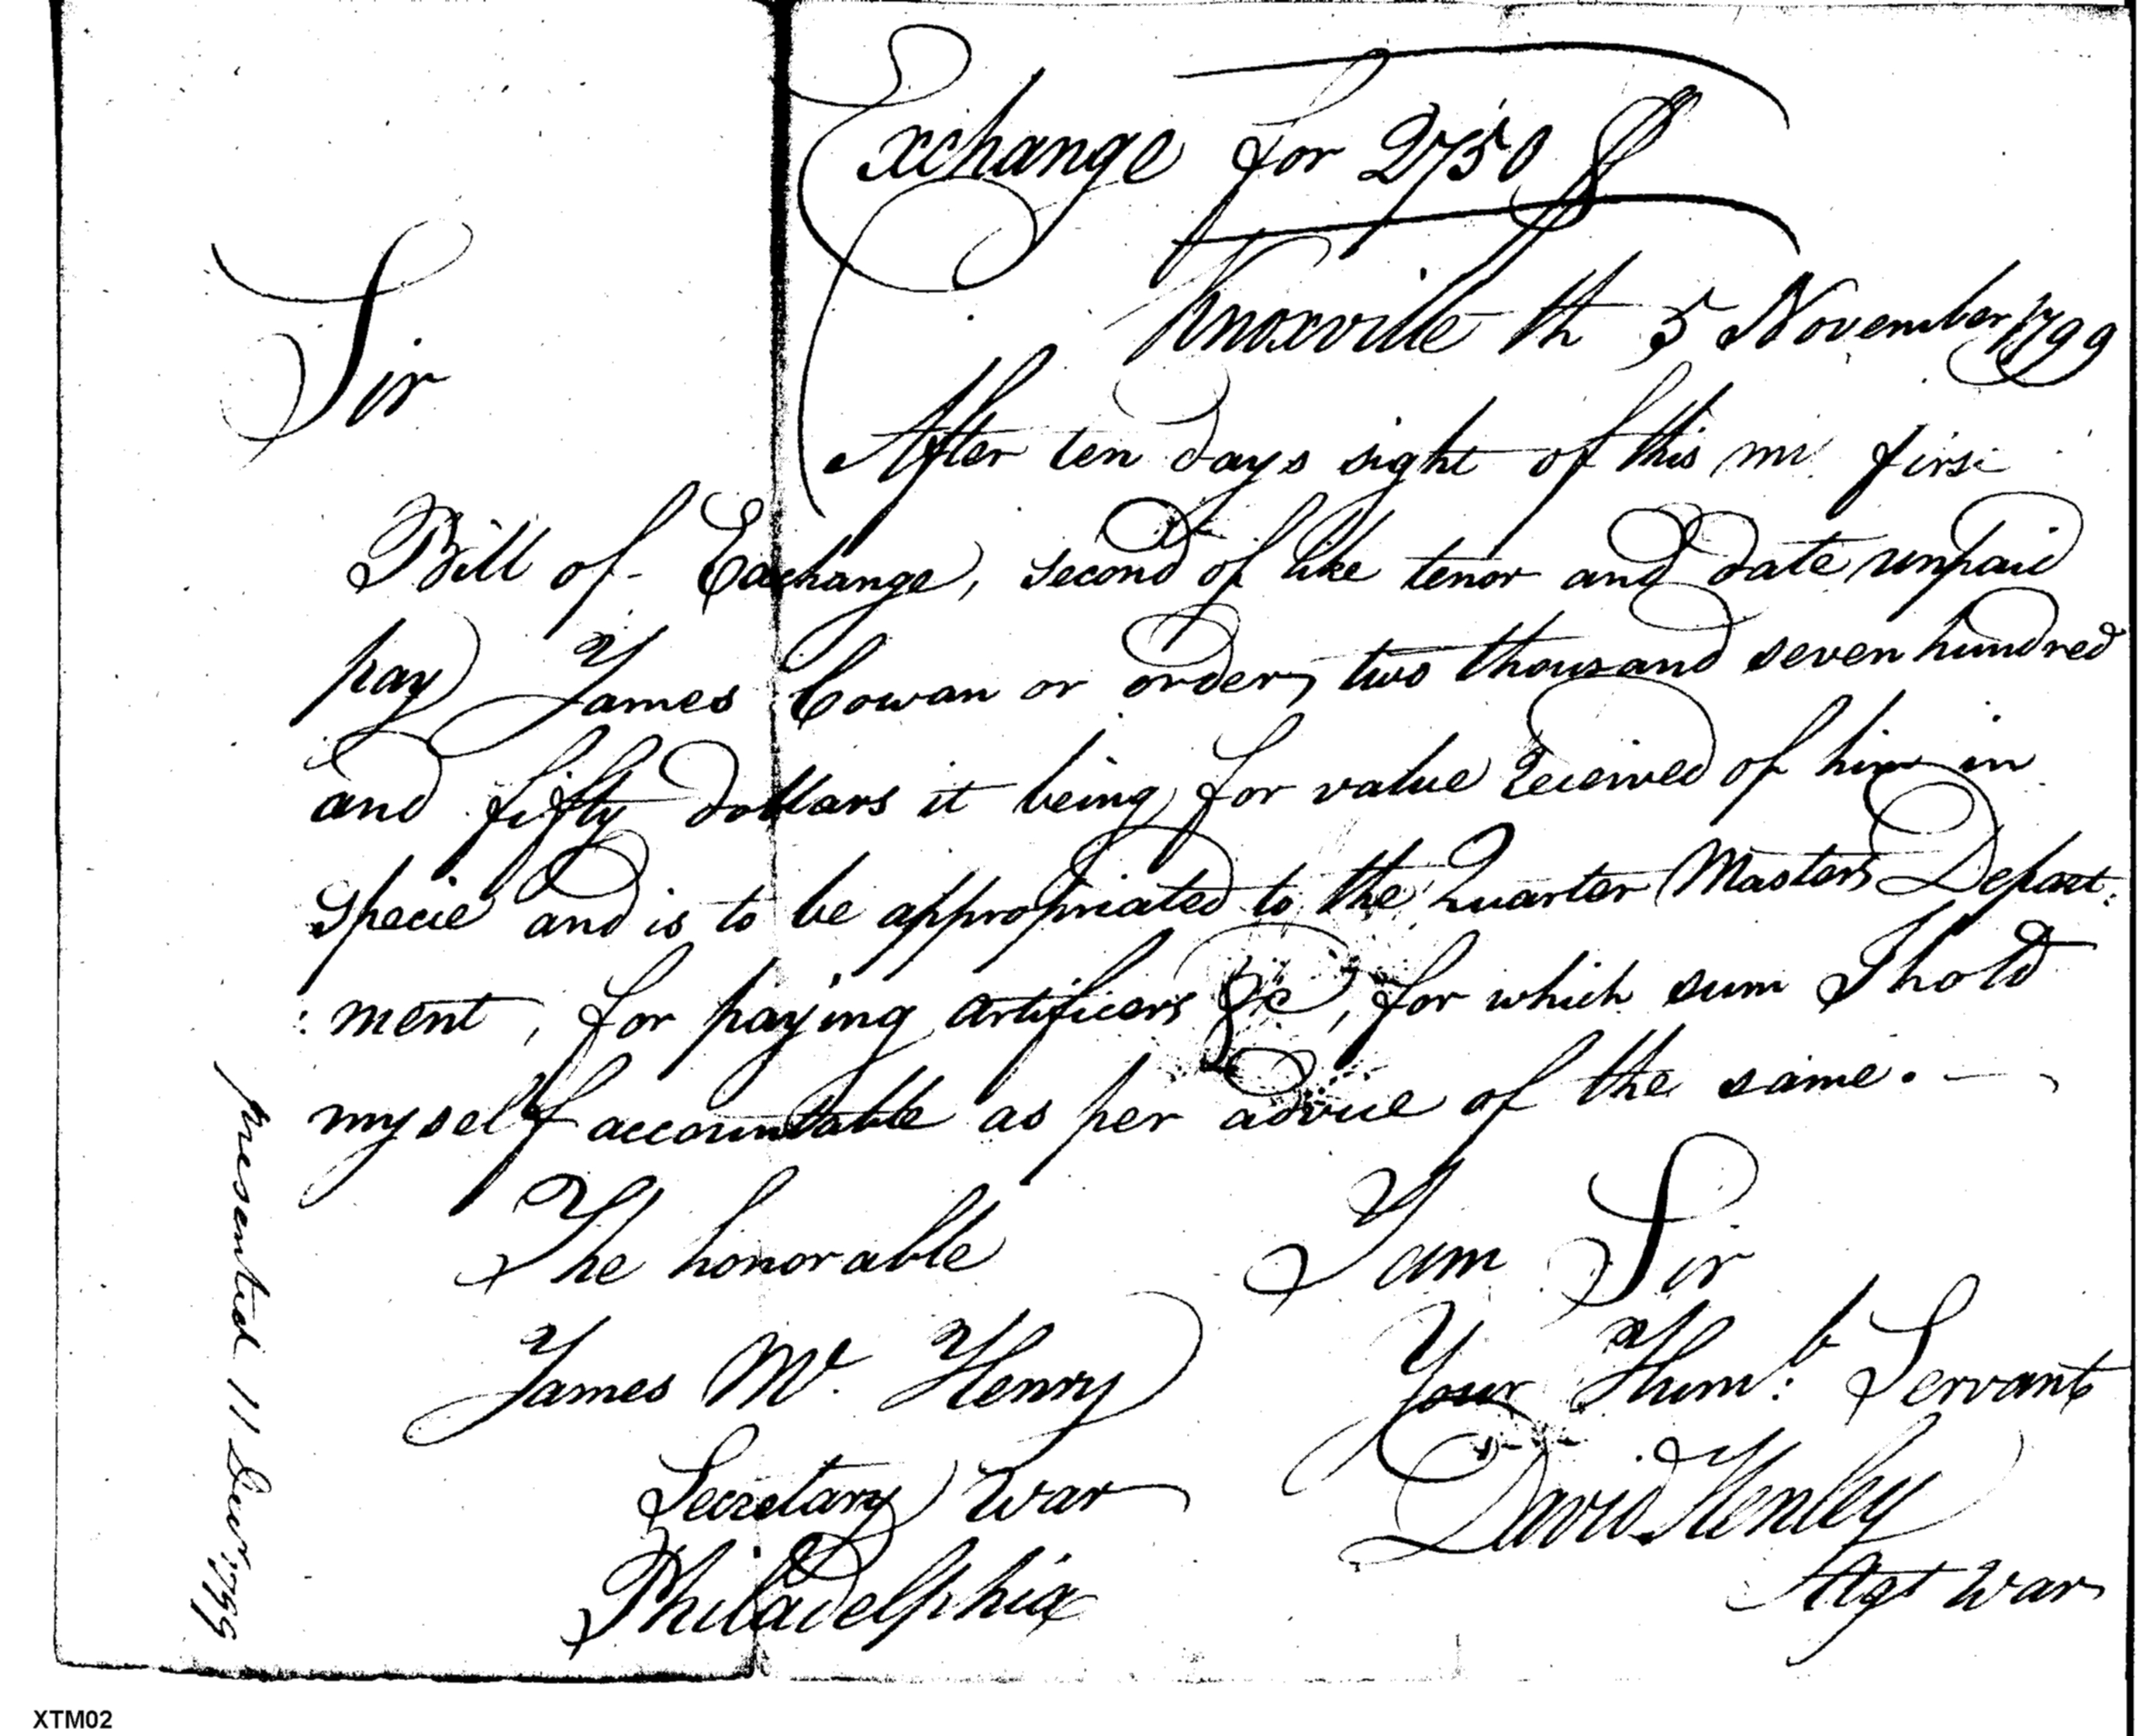 Exchange for 2750 $
Knoxville th 5 November 1799
Sir
After ten days sight of this my first
Bill of Exchange, second of like tenor and date unpaid
pay James Cowan or order, two thousand seven hundred
and fifty dollars it being for value received of him in
Specie and is to be appropriated to the Quarter Masters Depart:
: ment, for paying artificers &c, for which sum I hold
myself accountable as per advice of the same. —
The honorable I am Sir
James Mc. Henry Your Humb: Servant
Secretary War David Henley
Philadelphia Agt War
presented 11 Decr 1799
XTM02